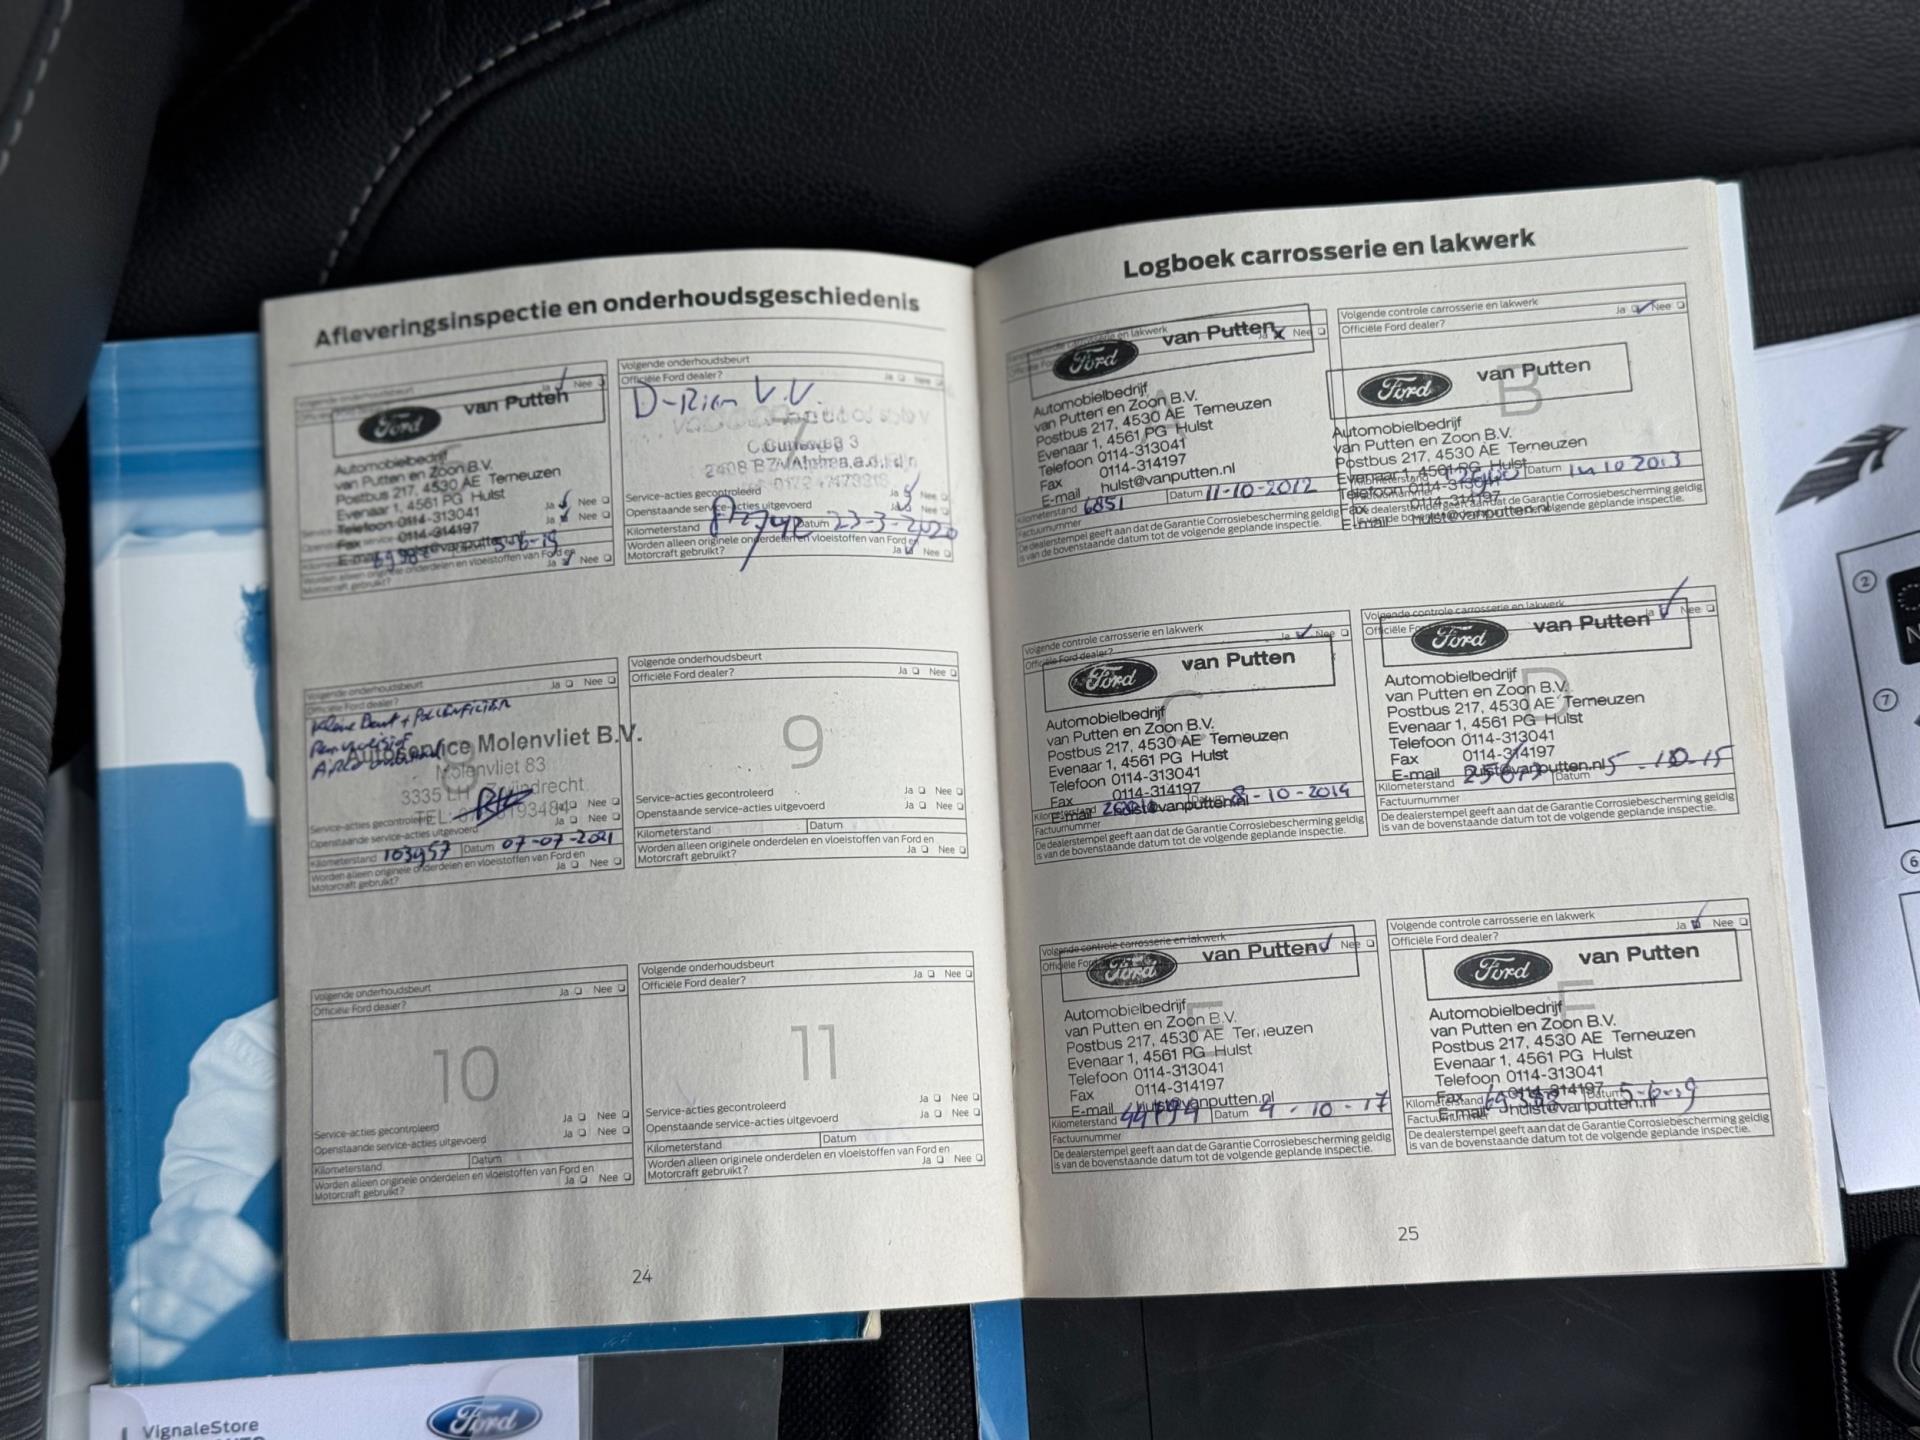 Afleveringsinspectie en onderhoudsgeschiedenis
Ja Nee
Ford van Putten
Automobielbedrijf
van Putten en Zoon B.V.
Postbus 217, 4530 AE Terneuzen
Evenaar 1, 4561 PG Hulst
Telefoon 0114-313041
Fax 0114-314197
Ja Nee
Ja Nee
Worden alleen originele onderdelen en vloeistoffen van Ford en
Motorcraft gebruikt?
Ja Nee
Volgende onderhoudsbeurt
Officiële Ford dealer? Ja Nee
7
Service-acties gecontroleerd Ja Nee
Openstaande service-acties uitgevoerd Nee
Kilometerstand Datum 23-3-2020
Worden alleen originele onderdelen en vloeistoffen van Ford en
Motorcraft gebruikt? Ja Nee
Volgende onderhoudsbeurt
Officiële Ford dealer? Ja Nee
Autoservice Molenvliet B.V.
Molenvliet 83
3335 LH
Service-acties gecontroleerd Ja Nee
Openstaande service-acties uitgevoerd Ja Nee
Kilometerstand 103957 Datum 07-07-2021
Worden alleen originele onderdelen en vloeistoffen van Ford en
Motorcraft gebruikt? Ja Nee
Volgende onderhoudsbeurt
Officiële Ford dealer? Ja Nee
9
Service-acties gecontroleerd Ja Nee
Openstaande service-acties uitgevoerd Ja Nee
Kilometerstand Datum
Worden alleen originele onderdelen en vloeistoffen van Ford en
Motorcraft gebruikt? Ja Nee
Volgende onderhoudsbeurt
Officiële Ford dealer? Ja Nee
10
Service-acties gecontroleerd Ja Nee
Openstaande service-acties uitgevoerd Ja Nee
Kilometerstand Datum
Worden alleen originele onderdelen en vloeistoffen van Ford en
Motorcraft gebruikt? Ja Nee
Volgende onderhoudsbeurt
Officiële Ford dealer? Ja Nee
11
Service-acties gecontroleerd Ja Nee
Openstaande service-acties uitgevoerd Ja Nee
Kilometerstand Datum
Worden alleen originele onderdelen en vloeistoffen van Ford en
Motorcraft gebruikt? Ja Nee
24
Logboek carrosserie en lakwerk
Ford van Putten Nee
Automobielbedrijf
van Putten en Zoon B.V.
Postbus 217, 4530 AE Terneuzen
Evenaar 1, 4561 PG Hulst
Telefoon 0114-313041
Fax 0114-314197
E-mail hulst@vanputten.nl
Kilometerstand 6851 Datum 11-10-2012
Factuurnummer
De dealerstempel geeft aan dat de Garantie Corrosiebescherming geldig
is van de bovenstaande datum tot de volgende geplande inspectie.
Volgende controle carrosserie en lakwerk
Officiële Ford dealer? Ja Nee
B
Ford van Putten
Automobielbedrijf
van Putten en Zoon B.V.
Postbus 217, 4530 AE Terneuzen
Evenaar 1, 4561 PG Hulst
Telefoon 0114-313041
Fax 0114-314197
E-mail hulst@vanputten.nl
Datum 10 2013
Volgende controle carrosserie en lakwerk
Officiële Ford dealer? Ja Nee
C
Ford van Putten
Automobielbedrijf
van Putten en Zoon B.V.
Postbus 217, 4530 AE Terneuzen
Evenaar 1, 4561 PG Hulst
Telefoon 0114-313041
Fax 0114-314197
E-mail hulst@vanputten.nl
8-10-2014
Factuurnummer
De dealerstempel geeft aan dat de Garantie Corrosiebescherming geldig
is van de bovenstaande datum tot de volgende geplande inspectie.
Volgende controle carrosserie en lakwerk
Ja Nee
D
Ford van Putten
Automobielbedrijf
van Putten en Zoon B.V.
Postbus 217, 4530 AE Terneuzen
Evenaar 1, 4561 PG Hulst
Telefoon 0114-313041
Fax 0114-314197
E-mail hulst@vanputten.nl
Kilometerstand Datum 5-10-15
Factuurnummer
De dealerstempel geeft aan dat de Garantie Corrosiebescherming geldig
is van de bovenstaande datum tot de volgende geplande inspectie.
Volgende controle carrosserie en lakwerk
Nee
E
Ford van Putten
Automobielbedrijf
van Putten en Zoon B.V.
Postbus 217, 4530 AE Terneuzen
Evenaar 1, 4561 PG Hulst
Telefoon 0114-313041
0114-314197
E-mail hulst@vanputten.nl
Kilometerstand Datum 4-10-17
Factuurnummer
De dealerstempel geeft aan dat de Garantie Corrosiebescherming geldig
is van de bovenstaande datum tot de volgende geplande inspectie.
Volgende controle carrosserie en lakwerk
Officiële Ford dealer? Ja Nee
F
Ford van Putten
Automobielbedrijf
van Putten en Zoon B.V.
Postbus 217, 4530 AE Terneuzen
Evenaar 1, 4561 PG Hulst
Telefoon 0114-313041
Fax 0114-314197
E-mail hulst@vanputten.nl
Kilometerstand Datum
Factuurnummer
De dealerstempel geeft aan dat de Garantie Corrosiebescherming geldig
is van de bovenstaande datum tot de volgende geplande inspectie.
25
2
7
6
VignaleStore
Ford